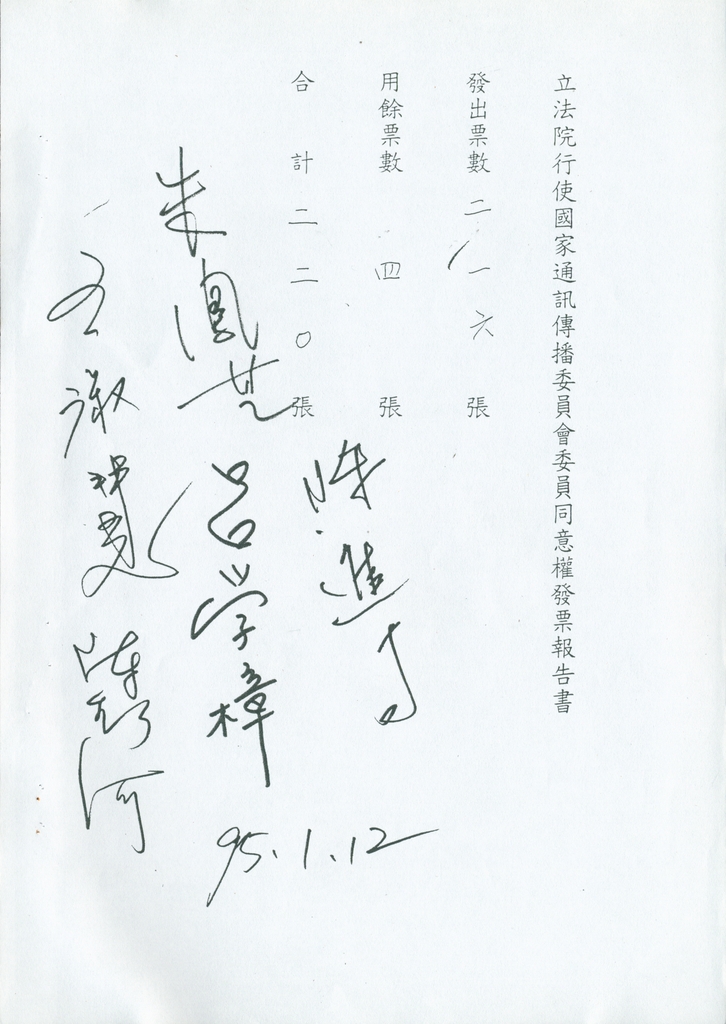 立法院行使國家通訊傳播委員會委員同意權發票報告書
發出票數二一六張
用餘票數四張
合計二二〇張
朱鳳芝
呂學樟
95.1.12